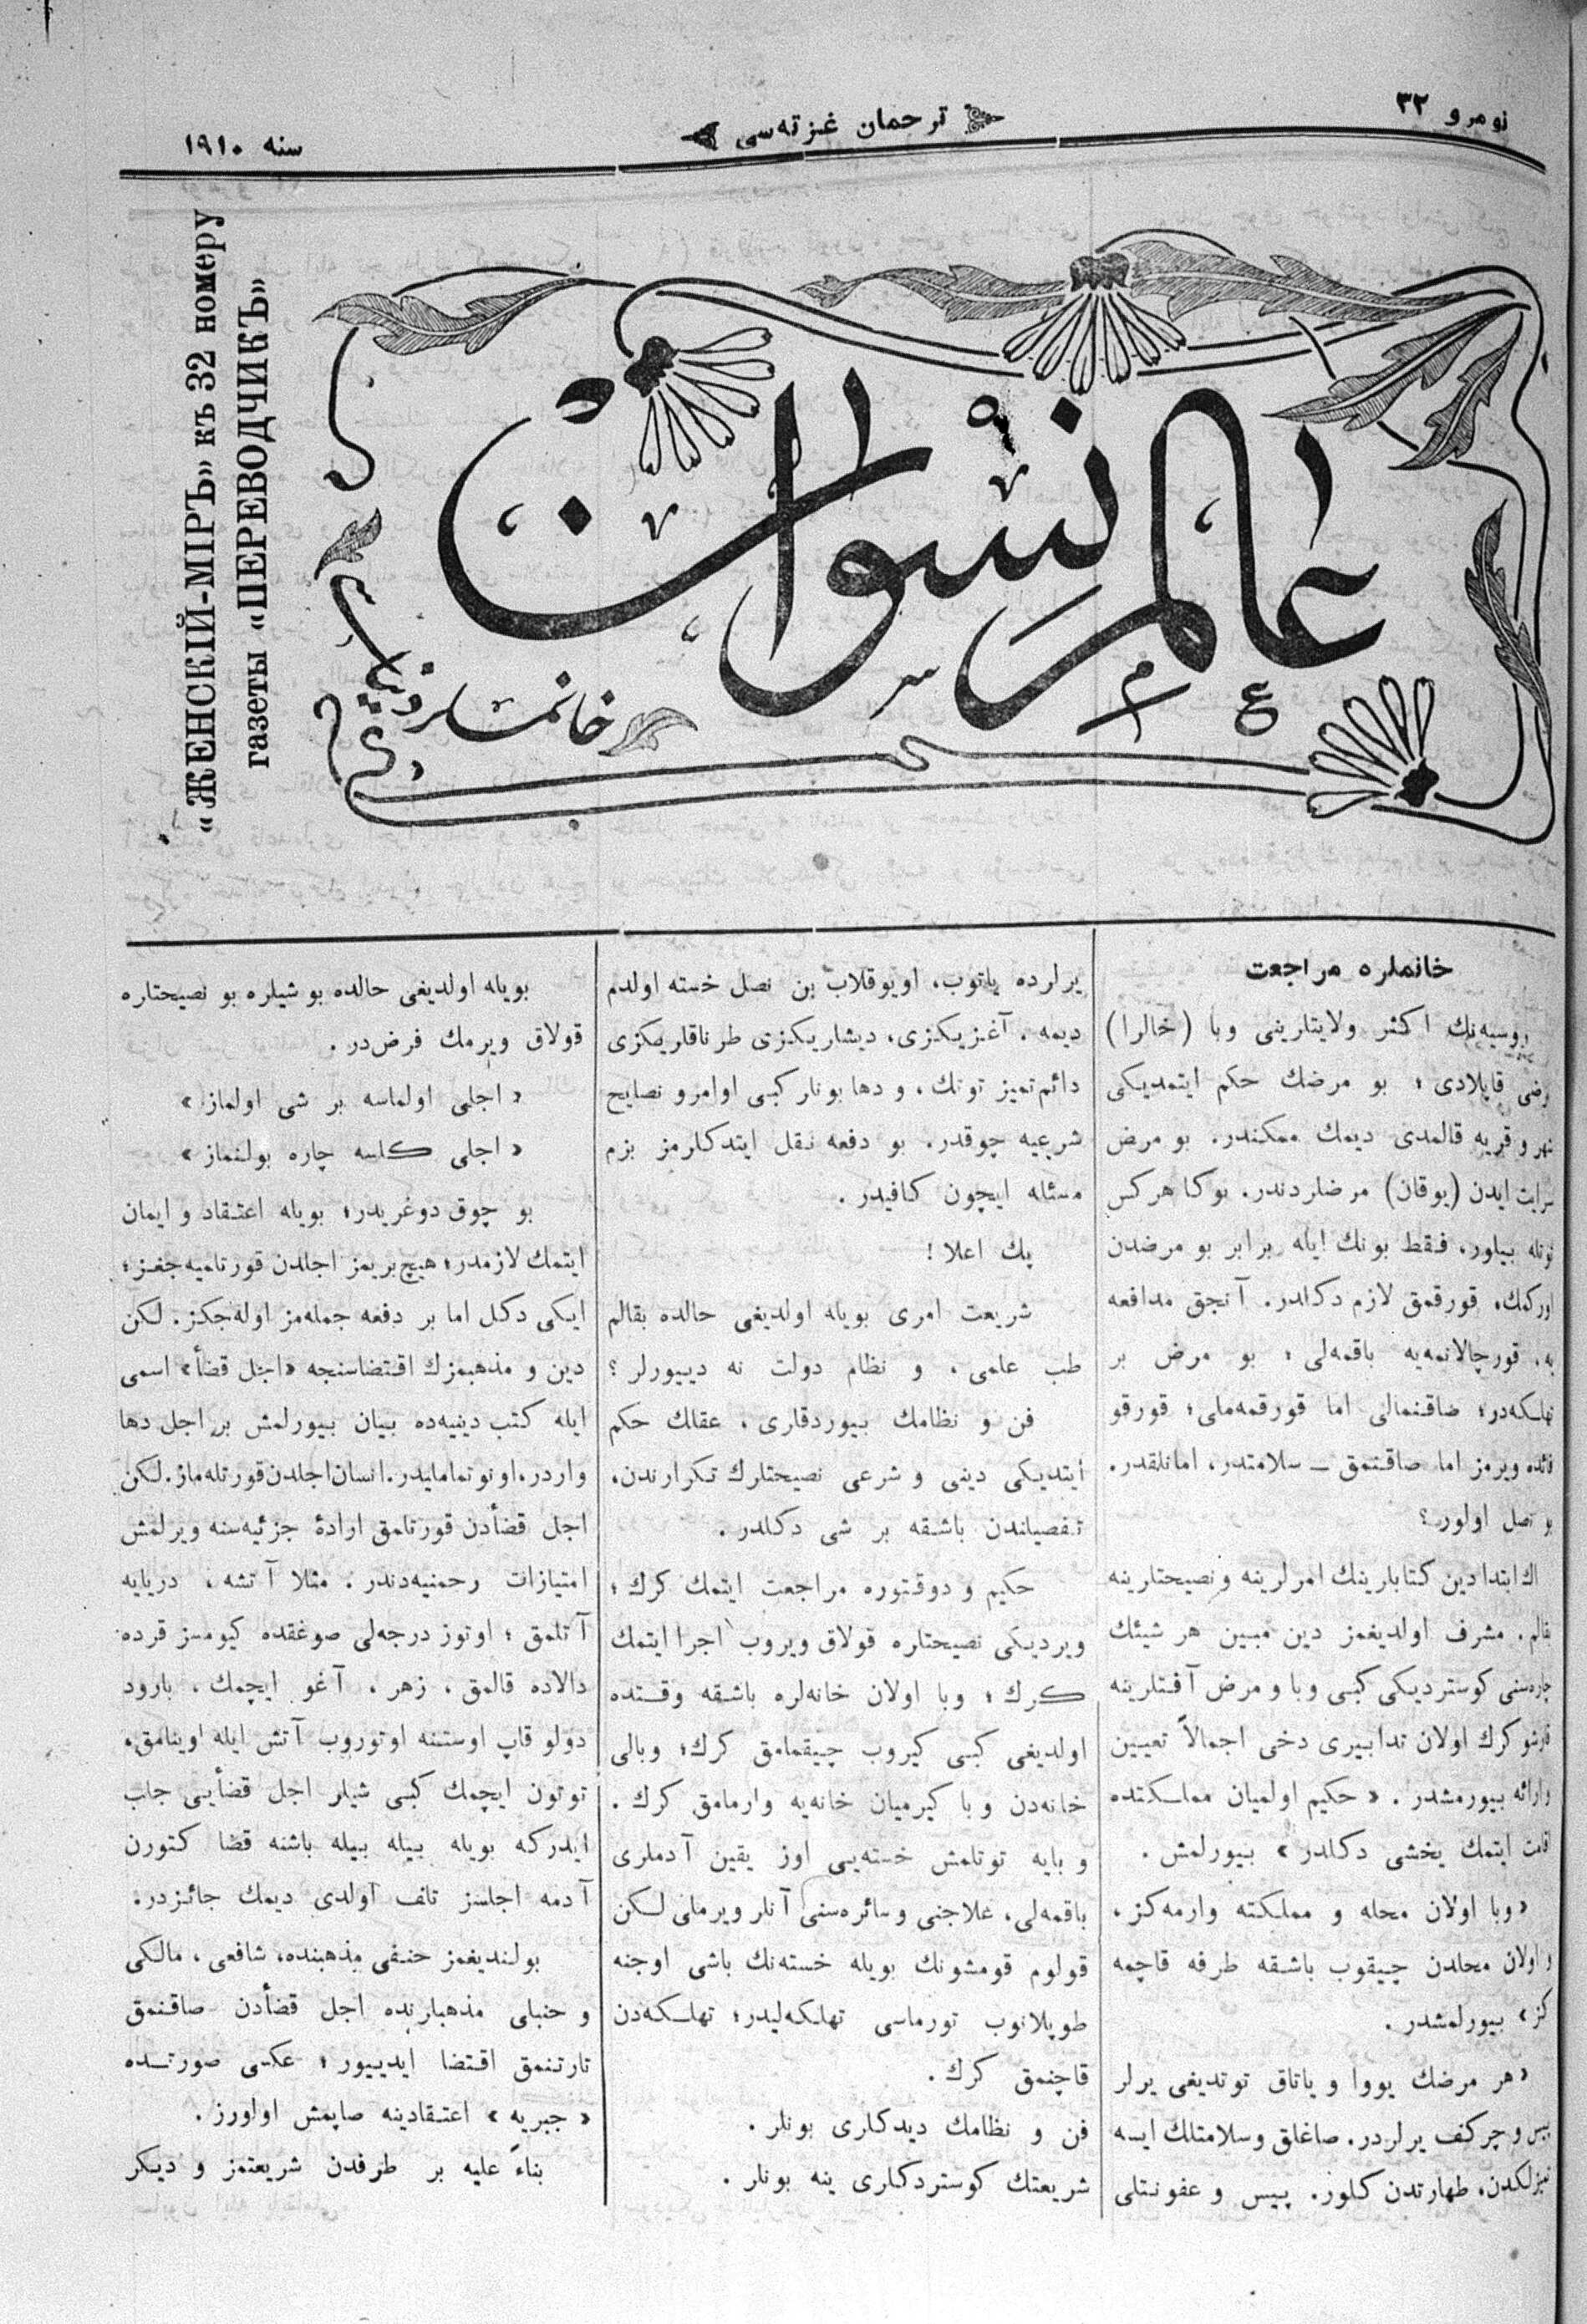 نومرو ٣٢
ترجمان غزته‌سی
سنه ١٩١٠
«ЖЕНСКІЙ-МІРЪ» къ 32 номеру
газеты «ПЕРЕВОДЧИКЪ»
عالم نسوان
خانملره مراجعت
روسیه‌نك اكثر ولایتلرینی وبا (خالرا)
قاپلادی ؛ بو مرضك حكم ایتمدیكی
و قریه قالمدی دیمك ممكندر. بو مرض
سرایت ایدن (یوقان) مرضلردندر. بوكا هركس
بیلور، فقط بونك ایله برابر بو مرضدن
اوركمك، قورقمق لازم دكلدر. آنجق مدافعه
قورچالانمه‌یه باقمه‌لی ؛ بو مرض بر
تهلكه‌در؛ صاقنمالی اما قورقمه‌ملی؛ قورقو
فائده ویرمز اما صاقنمق — سلامتدر، امانلقدر.
بو نصل اولور؟
اك ابتدا دین كتابلرینك امرلرینه و نصیحتلرینه
بقالم. مشرف اولدیغمز دین مبین هر شیئك
چاره‌سنی كوستردیكی كبی وبا و مرض آفتلرینه
قارشو كرك اولان تدابیری دخی اجمالاً تعیین
وارائه بیورمشدر. «حكیم اولمیان مملكتده
اقامت ایتمك یخشی دكلدر» بیورلمش.
«وبا اولان محله و مملكته وارمه‌كز،
اولان محلدن چیقوب باشقه طرفه قاچمه
كز» بیورلمشدر.
«هر مرضك یووا و یاتاق توتدیغی یرلر
پیس و چركف یرلردر. صاغلق وسلامتلك ایسه
تمیزلكدن، طهارتدن كلور. پیس و عفونتلی
یرلرده یاتوب، اویوقلاب بن نصل خسته اولدم
دیمه. آغزیكزی، دیشلریكزی طرناقلریكزی
دائم تمیز توتك، و دها بونلر كبی اوامر و نصایح
شرعیه چوقدر. بو دفعه نقل ایتدكلرمز بزم
مسئله ایچون كافیدر.
پك اعلا!
شریعت امری بویله اولدیغی حالده بقالم
طب علمی، و نظام دولت نه دییورلر؟
فن و نظامك بیوردقلری، عقلك حكم
ایتدیكی دینی و شرعی نصیحتلرك تكرارندن،
تفصیلندن باشقه بر شی دكلدر.
حكیم و دوقتوره مراجعت ایتمك كرك؛
ویردیكی نصیحتلره قولاق ویروب اجرا ایتمك
كرك؛ وبا اولان خانه‌لره باشقه وقتده
اولدیغی كبی كیروب چیقمامق كرك؛ وبالی
خانه‌دن وبا كیرمیان خانه‌یه وارمامق كرك.
وبایه توتلمش خسته‌یی اوز یقین آدملری
باقمه‌لی، علاجنی وسائره‌سنی آنلر ویرملی لكن
قولوم قومشونك بویله خسته‌نك باشی اوجنه
طوپلانوب تورماسی تهلكه‌لیدر؛ تهلكه‌دن
قاچنمق كرك.
فن و نظامك دیدكلری بونلر.
شریعتك كوستردكلری ینه بونلر.
بویله اولدیغی حالده بو شیلره بو نصیحتلره
قولاق ویرمك فرض‌در.
«اجلی اولماسه بر شی اولماز»
«اجلی كلسه چاره بولنماز»
بو چوق دوغریدر؛ بویله اعتقاد و ایمان
ایتمك لازمدر؛ هیچ بریمز اجلدن قورتلمیه‌جغز؛
ایكی دكل اما بر دفعه جمله‌مز اوله‌جكز. لكن
دین و مذهبمزك اقتضاسنجه «اجل قضأ» اسمی
ایله كتب دینیه‌ده بیان بیورلمش بر اجل دها
واردر، اونوتمامالیدر. انسان اجلدن قورتله‌ماز. لكن
اجل قضأدن قورتلمق ارادۀ جزئیه‌سنه ویرلمش
امتیازات رحمنیه‌دندر. مثلا آتشه، دریایه
آتلمق؛ اوتوز درجه‌لی صوغقده كیومسز قرده
دالاده قالمق، زهر، آغو ایچمك، بارود
دولو قاپ اوستنه اوتوروب آتش ایله اوینامق،
توتون ایچمك كبی شیلر اجل قضأیی جلب
ایدركه بویله بیله بیله باشنه قضا كتورن
آدمه اجلسز تلف اولدی دیمك جائزدر.
بولندیغمز حنفی مذهبنده، شافعی، مالكی
و حنبلی مذهبلرنده اجل قضأدن صاقنمق
تارتنمق اقتضا ایدییور؛ عكسی صورتده
«جبریه» اعتقادینه صاپمش اولورز.
بناءً علیه بر طرفدن شریعتمز و دیكر